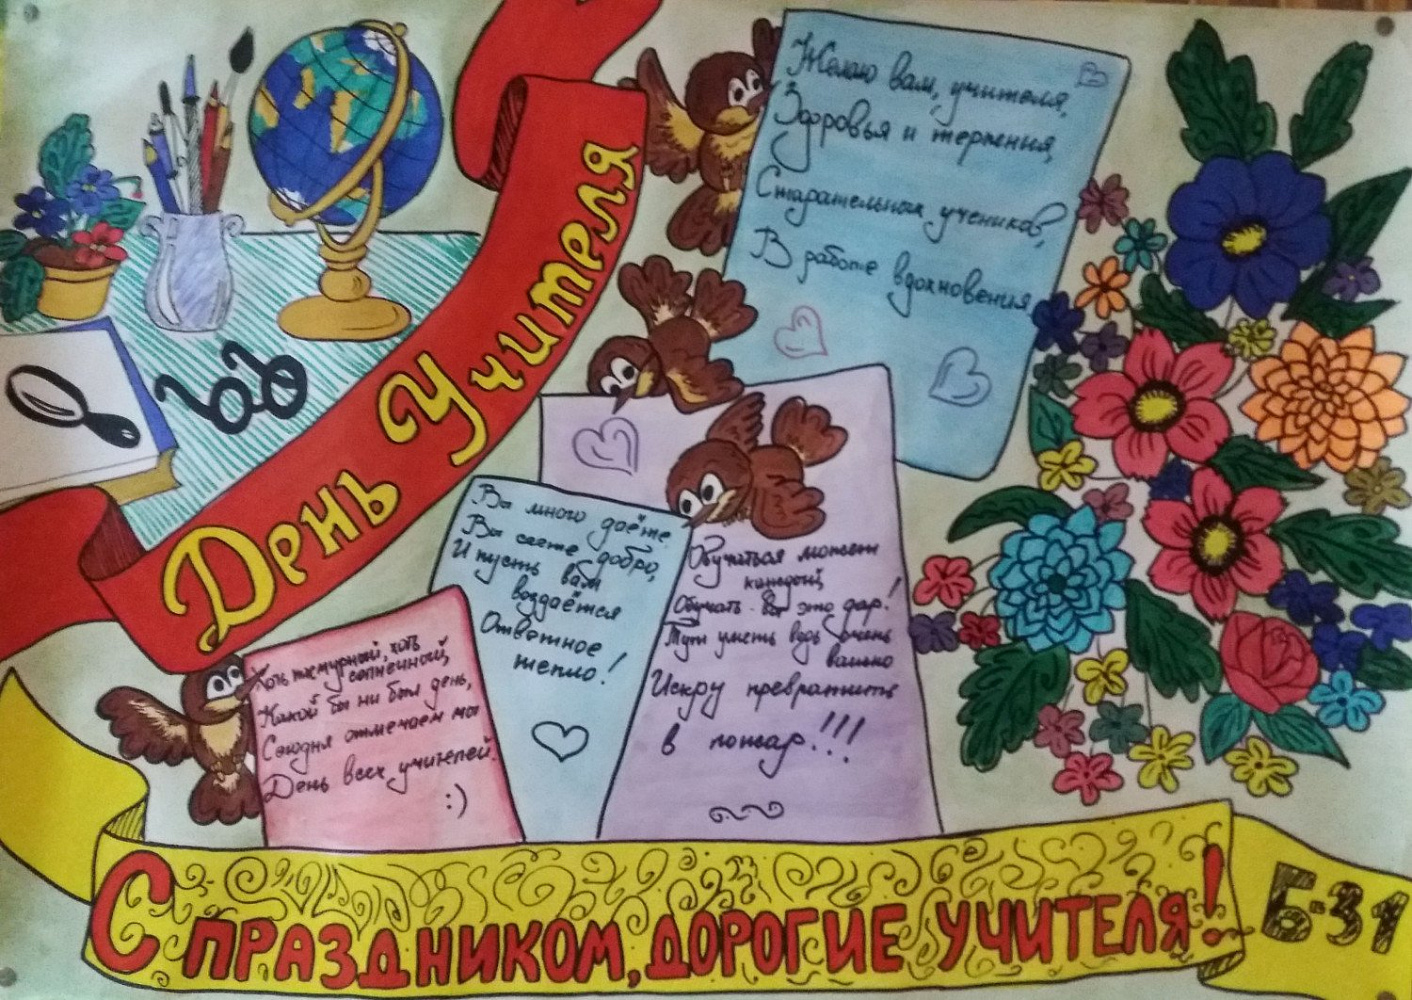 День Учителя
Желаю вам, учителя,
Здоровья и терпения,
Старательных учеников,
В работе вдохновения
Вы много даёте
Вы сеете добро,
И пусть вам
воздаётся
Ответное
тепло!
Обучаться может
каждый,
Обучать - вот это дар!
Тут уметь ведь очень
важно
Искру превратить
в пожар!!!
Хоть пасмурный, хоть
солнечный,
Какой бы ни был день,
Сегодня отмечаем мы
День всех учителей.
:)
С ПРАЗДНИКОМ, ДОРОГИЕ УЧИТЕЛЯ!
Б-31